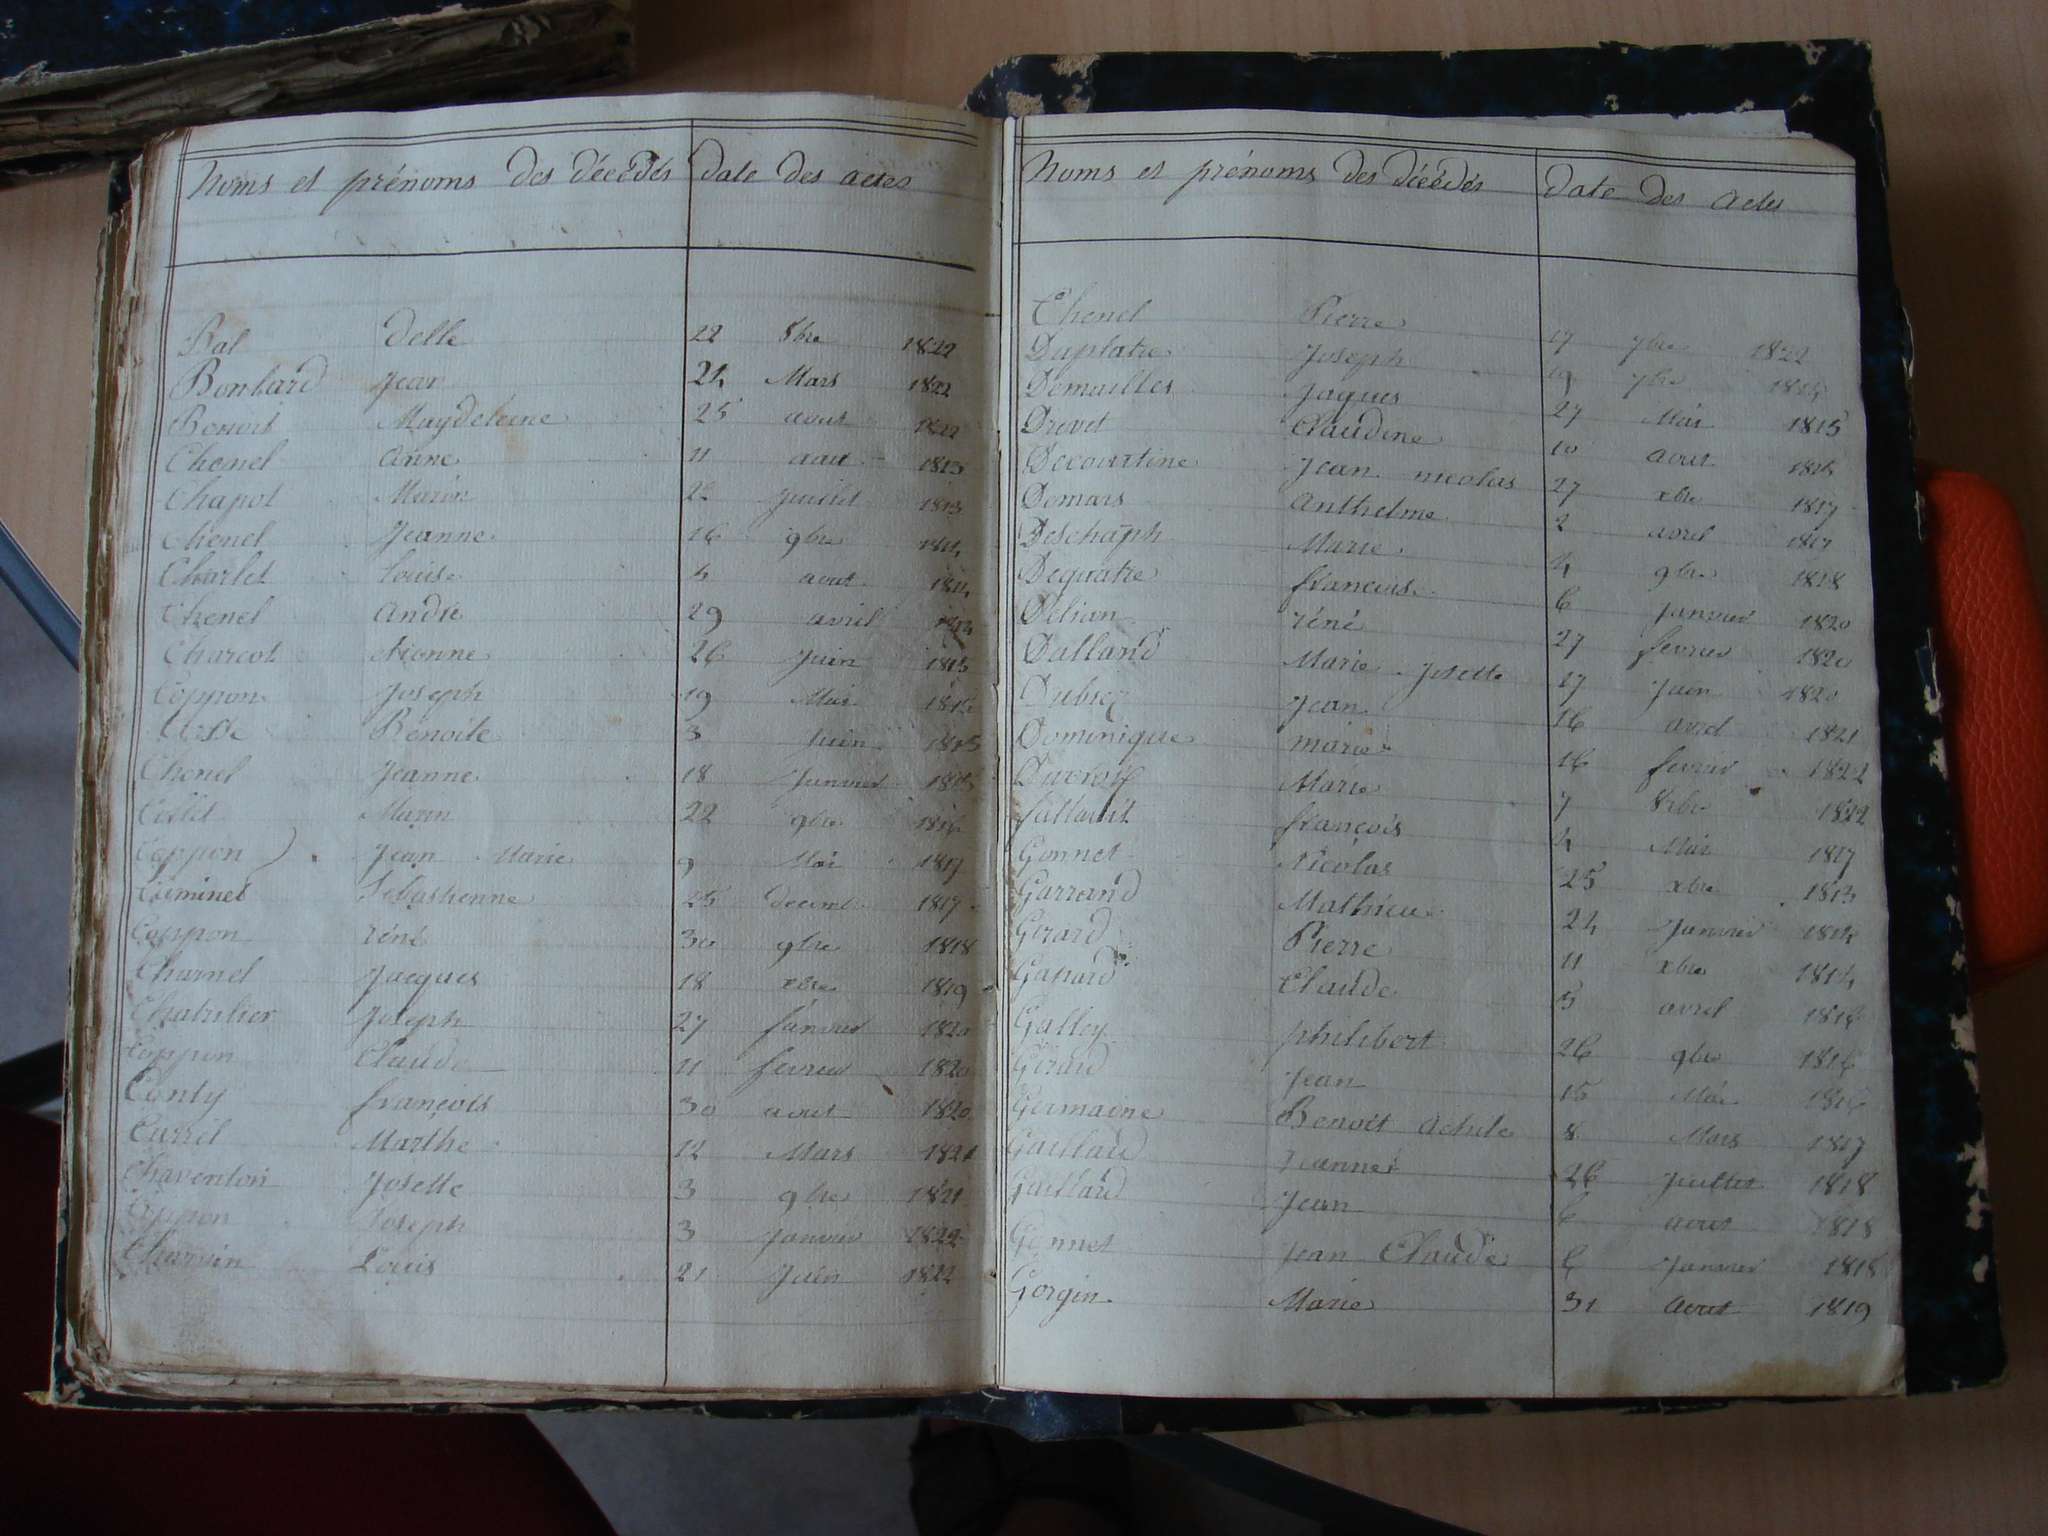 Noms et prénoms des décédés Date des actes
Bal Delle 22 8bre 1822
Bonhard Jean 24 Mars 1822
Benoit Maydeleine 25 aout 1822
Chenel Anne 11 aout 1813
Chapot Marin 22 Juillet 1813
Chenel Jeanne 16 9bre 1814
Charlet Louise aout 1814
Chenel André 29 avril
Charcot etienne 26 Juin 1815
Coppon Joseph 19 Mai
Benoite 3 Juin 1815
Chenel Jeanne 18 Janvier 1815
Collet Marin 22 9bre 1816
Coppon Jean Marie 9 Mai 1817
Cheminet Sebastienne 25 decemb 1817
Coppon réné 30 9bre 1818
Charnel Jacques 18 xbre 1819
Chatelier Joseph 27 Janvier 1820
Coppon Claude 11 fevrier 1820
Conty françois 30 aout 1820
Curtil Marthe 12 Mars 1821
Chaventon Josette 3 9bre 1821
Coppon Joseph 3 Janvier 1822
Charvin Louis 21 Juin 1822
Noms et prénoms des décédés Date des Actes
Chenel Pierre 17 7bre 1822
Duplatre Joseph 19 7bre
Demailles Jaques 27 Mai 1815
Drevet Claudine 10 aout
Decourtine Jean nicolas 27 xbre 1817
Demars Anthelme 2 avril 1817
Deschamph Marie 4 9bre 1818
Dequatre francois 6 Janvier 1820
Delian réné 27 fevrier 1820
Dalland Marie Josette 17 Juin 1820
Dubiez Jean 16 avril 1821
Dominique marie 16 fevrier 1822
Marie 7 8bre 1822
françois 4 Mai 1817
Gonnet Nicolas 25 xbre 1813
Garrand Mathieu 24 Janvier 1814
Girard Pierre 11 xbre 1814
Claude 5 avril 1816
Galley philibert 26 9bre 1816
Girard Jean 15 Mai 1816
Germaine Benoit Achile 8 Mars 1817
Gaillard Jeanne 26 Juillet 1818
Gaillard Jean 6 aout 1818
Gonnet Jean Claude 6 Janvier 1818
Gorgin Marie 31 Aout 1819